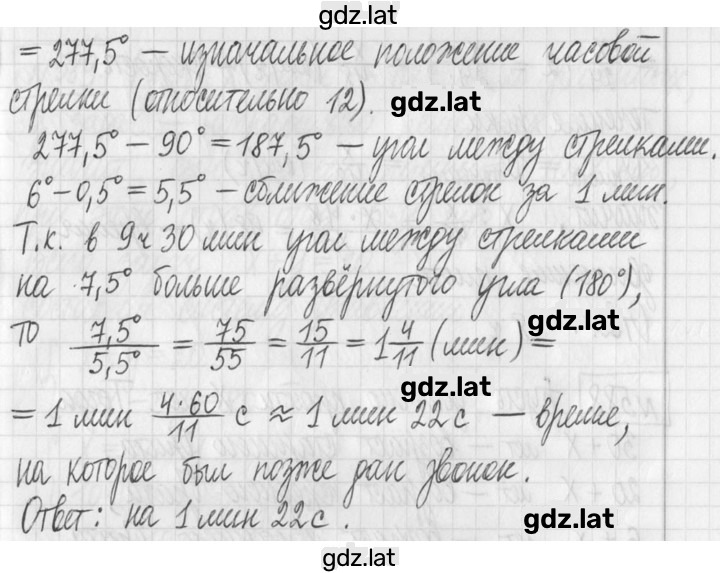 gdz.lat
= 277,5° — изначальное положение часовой
стрелки (относительно 12). gdz.lat
277,5° − 90° = 187,5° — угол между стрелками.
6° − 0,5° = 5,5° — сближение стрелок за 1 мин.
Т.к. в 9 ч 30 мин угол между стрелками
на 7,5° больше развёрнутого угла (180°),
gdz.lat
то 7,5°/5,5° = 75/55 = 15/11 = 1 4/11 (мин) =
gdz.lat
= 1 мин 4·60/11 с ≈ 1 мин 22 с — время,
на которое был позже дан звонок.
Ответ: на 1 мин 22 с. gdz.lat
gdz.lat